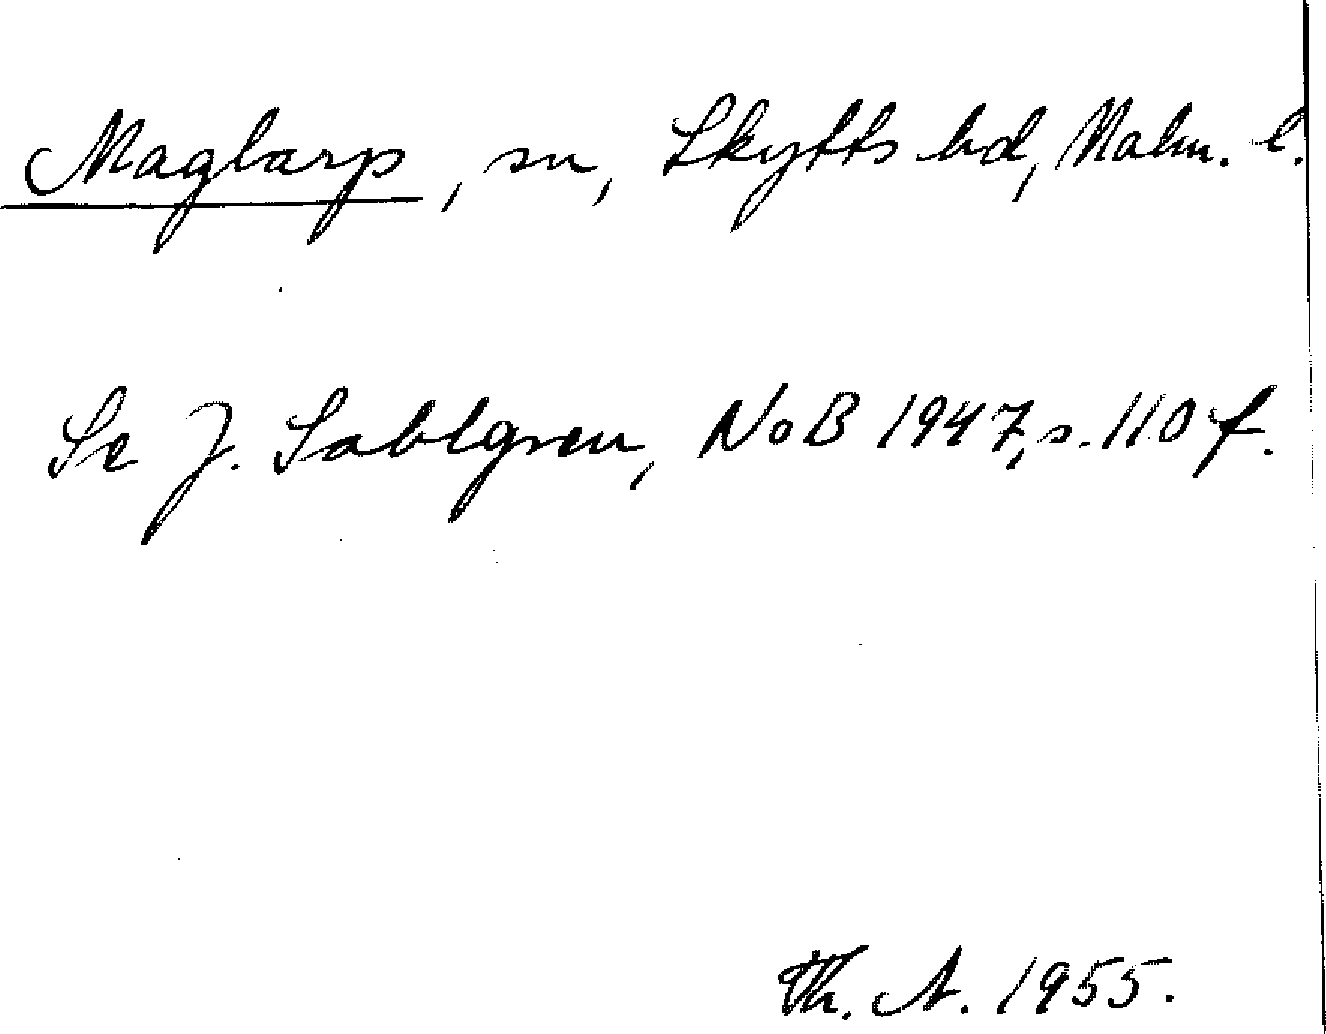 Maglarp, sn, Skytts hd, Malm. l.
Se J. Sahlgren, NoB 1947, s. 110 f.
Th. A. 1955.